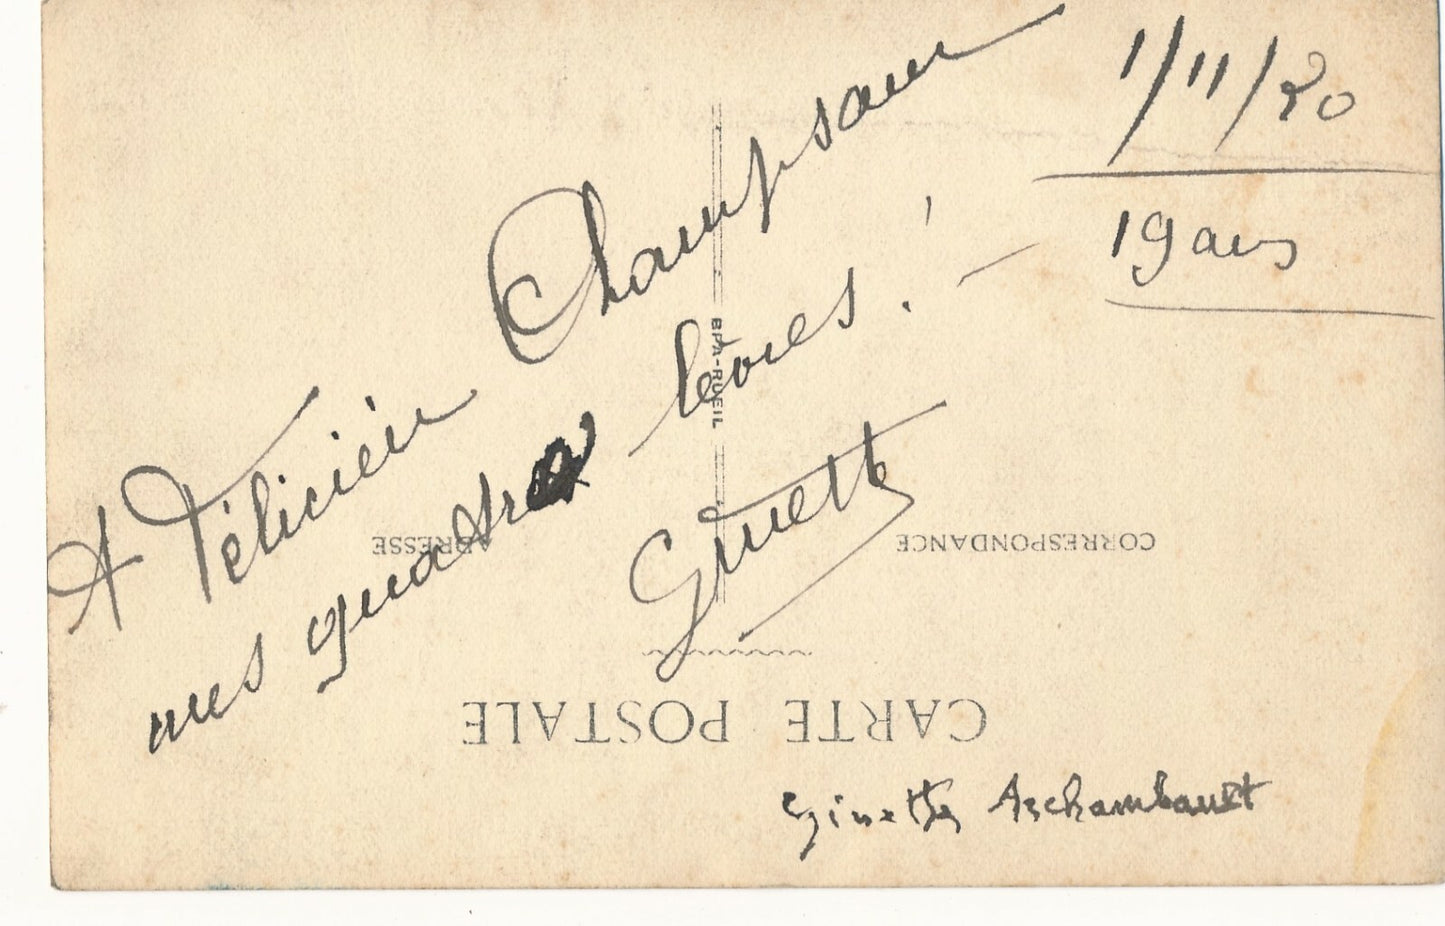 1/11/20
19 ans
A Félicien Champsaur
mes quatre lèvres ! —
Ginette
BPA-RUEIL
ADRESSE
CORRESPONDANCE
CARTE POSTALE
Ginette Archambault